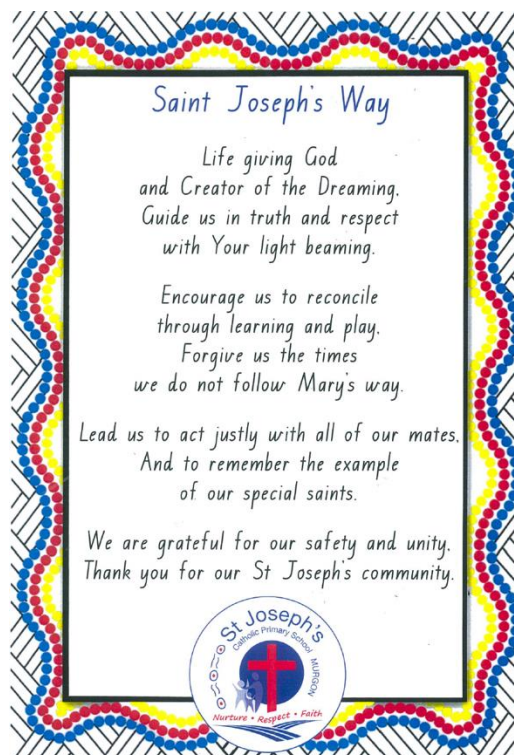 Saint Joseph's Way
Life giving God
and Creator of the Dreaming,
Guide us in truth and respect
with Your light beaming.
Encourage us to reconcile
through learning and play,
Forgive us the times
we do not follow Mary's way.
Lead us to act justly with all of our mates,
And to remember the example
of our special saints.
We are grateful for our safety and unity,
Thank you for our St Joseph's community.
St Joseph's
Catholic Primary School
MURGON
Nurture • Respect • Faith